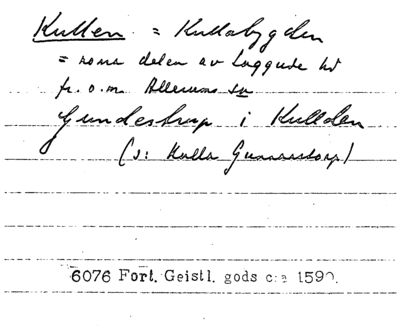 Kullen = Kullabygden
= norra delen av Luggude hd
fr. o. m. Allerums sn
Gundestrup i Kulden
(ɔ: Kulla Gunnarstorp)
6076 Fort. Geistl. gods c:a 1590.